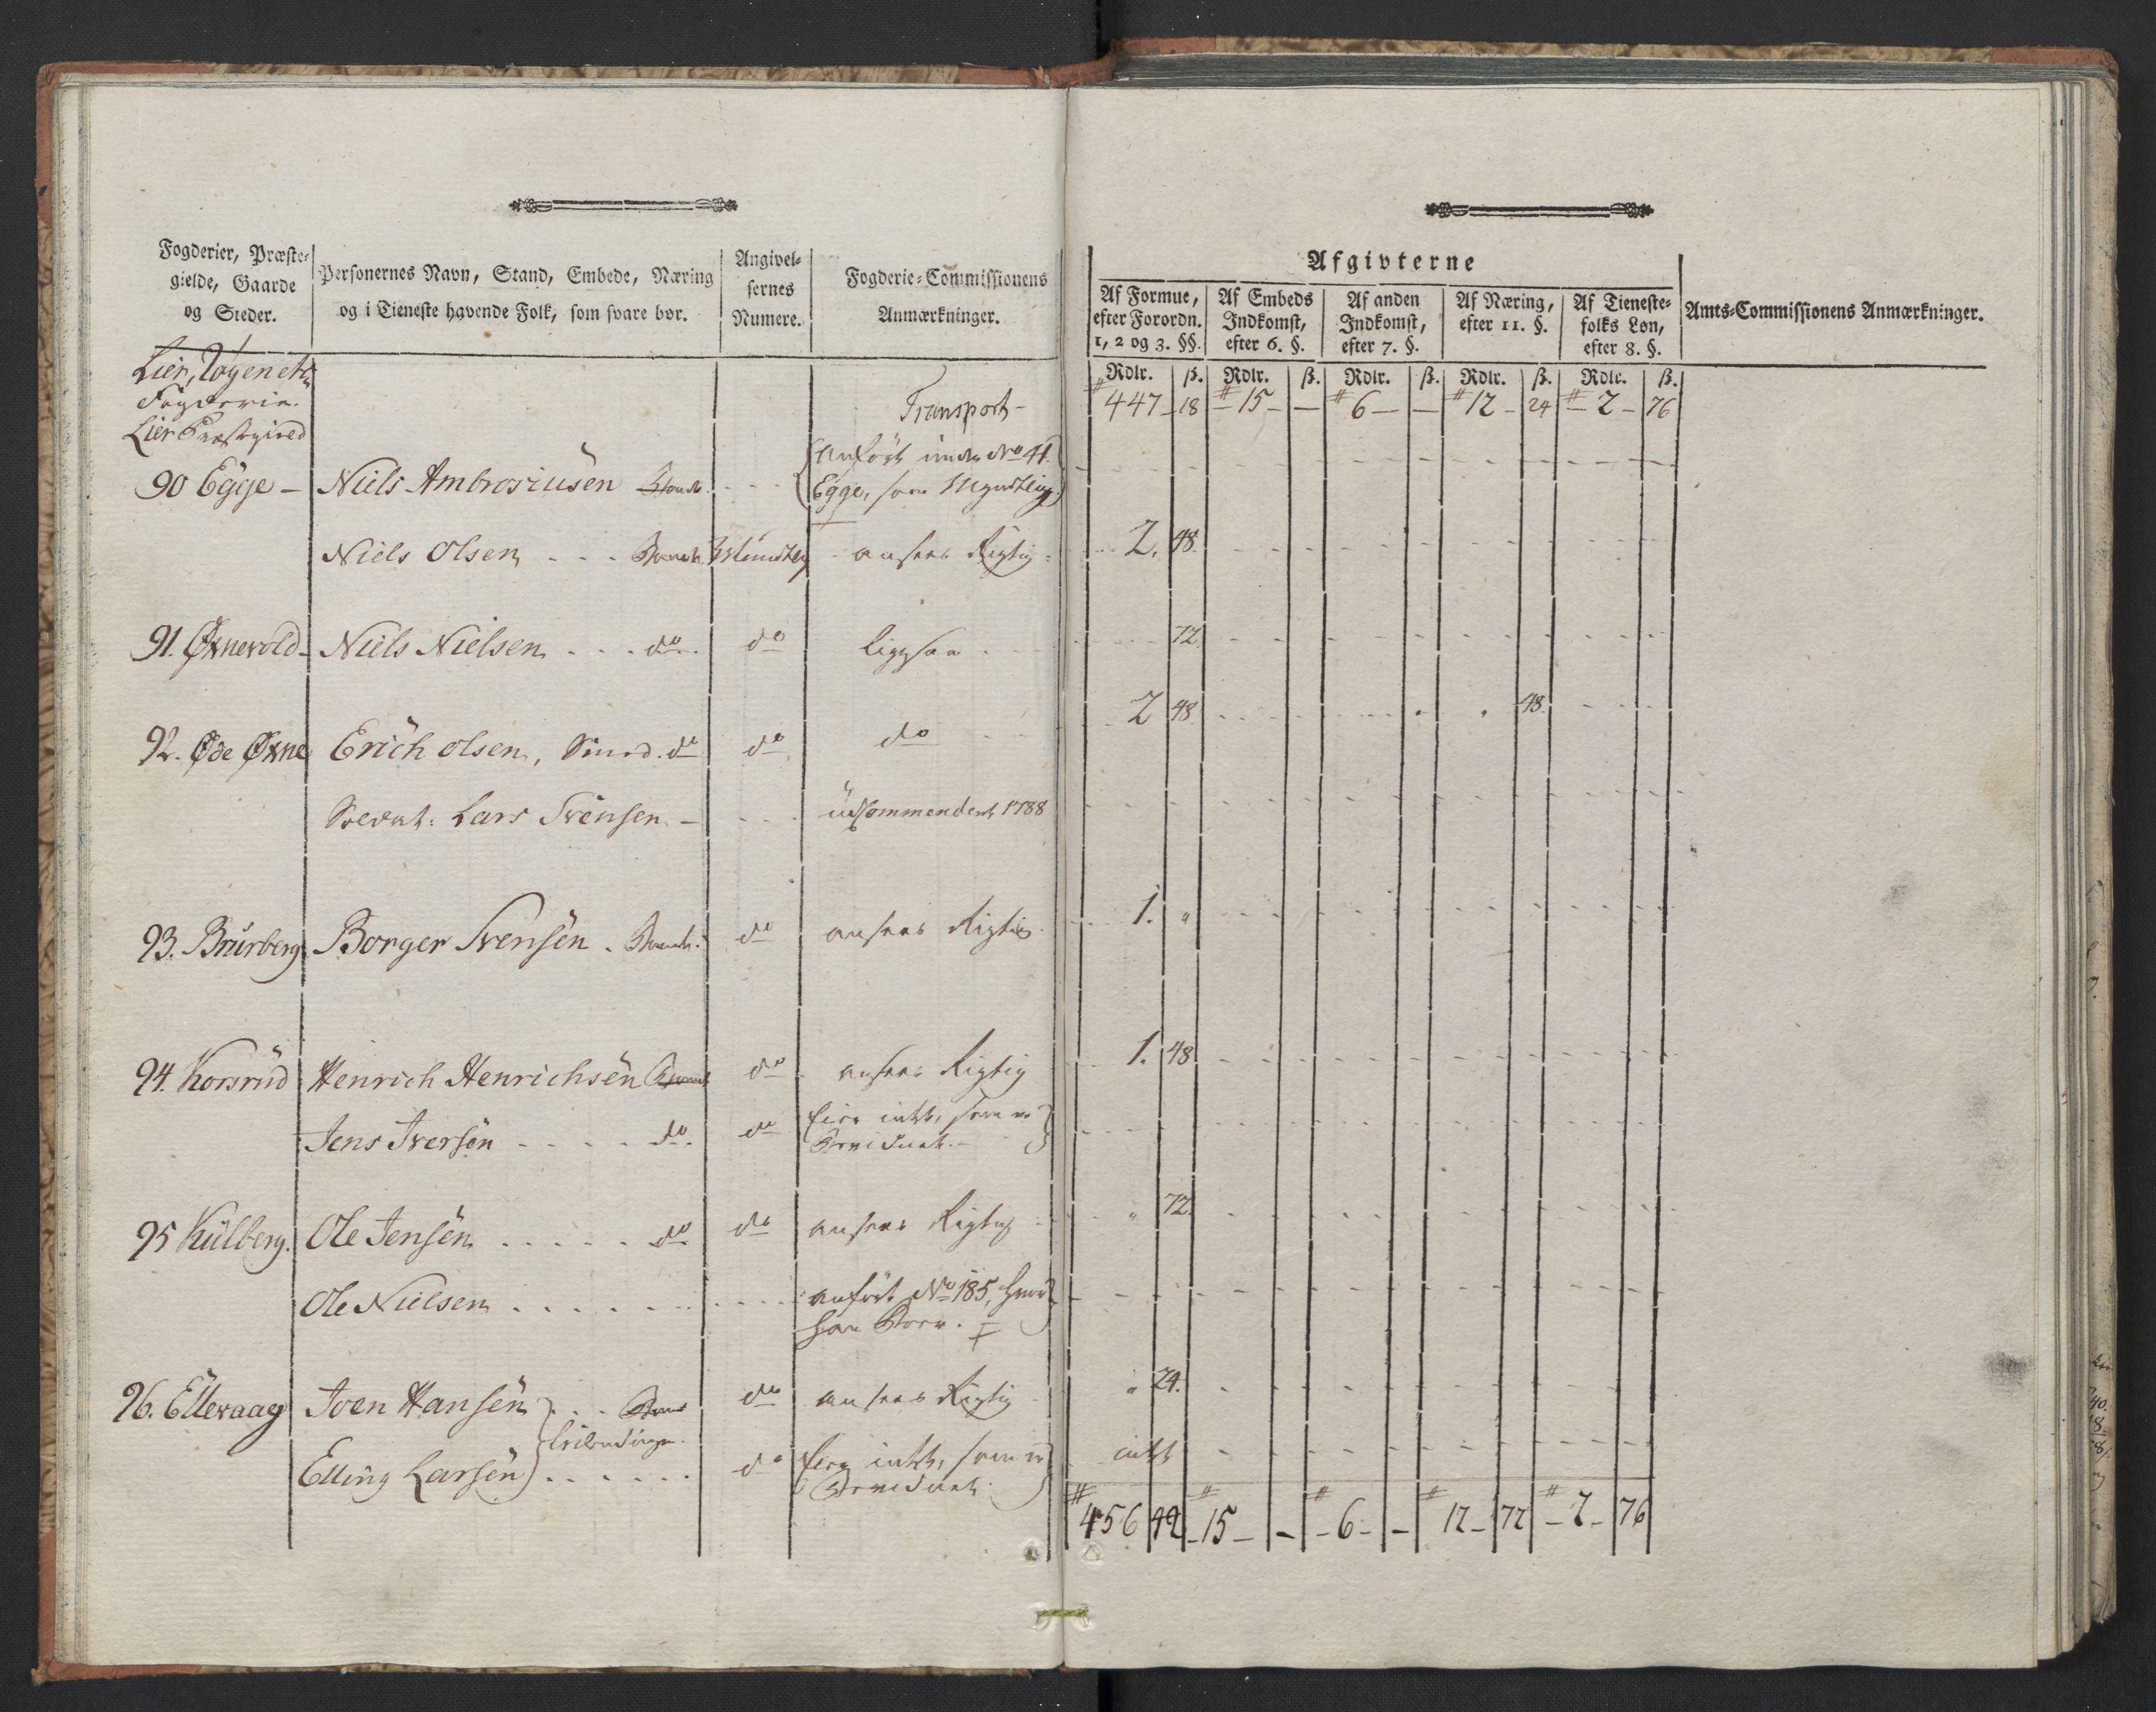 Fogderier, Præste-
gielde, Gaarde
og Steder.
Personernes Navn, Stand, Embede, Næring
og i Tieneste havende Folk, som svare bør.
Angivel-
sernes
Numere.
Fogderie-Commissionens
Anmærkninger.
Afgivterne
Af Formue,
efter Forordn.
1, 2 og 3. §§.
Af Embeds
Indkomst,
efter 6. §.
Af anden
Indkomst,
efter 7. §.
Af Næring,
efter 11. §.
Af Tieneste-
folks Løn,
efter 8. §.
Amts-Commissionens Anmærkninger.
Rdlr. ß. Rdlr. ß. Rdlr. ß. Rdlr. ß. Rdlr. ß.
Lier, Røgen etc
Fogderie.
Lier Præstegield
Transport - 447 - 18 - 15 - - 6 - - 12 - 24 - 2 - 76
anført under No 41
90 Egge - Niels Ambrosiusen Egge, som
Niels Olsen Mündtlig ansees Rigtig 2. 48.
91. Øxnevold - Niels Nielsen do do ligesaa 72
92. Øde Øxne Erich Olsen, Smed. do do do 2 48 48.
Soldat: Lars Svensen - udkommendert 1788
93. Brurberg Borger Svensen do ansees Rigtig 1. "
94. Korsrud Henrich Henrichsen do ansees Rigtig 1. 48
Jens Iversen do do eier intet, som er
95 Kulberg. Ole Jensen do do ansees Rigtig " 72
Ole Nielsen anført No 185, hvor
han
96. Elleraag Joen Hansen do ansees Rigtig " 24.
Elling Larsen do eier intet, som er intet
456 42 - 15 - - - 6 - - 12 - 72 - 2 - 76